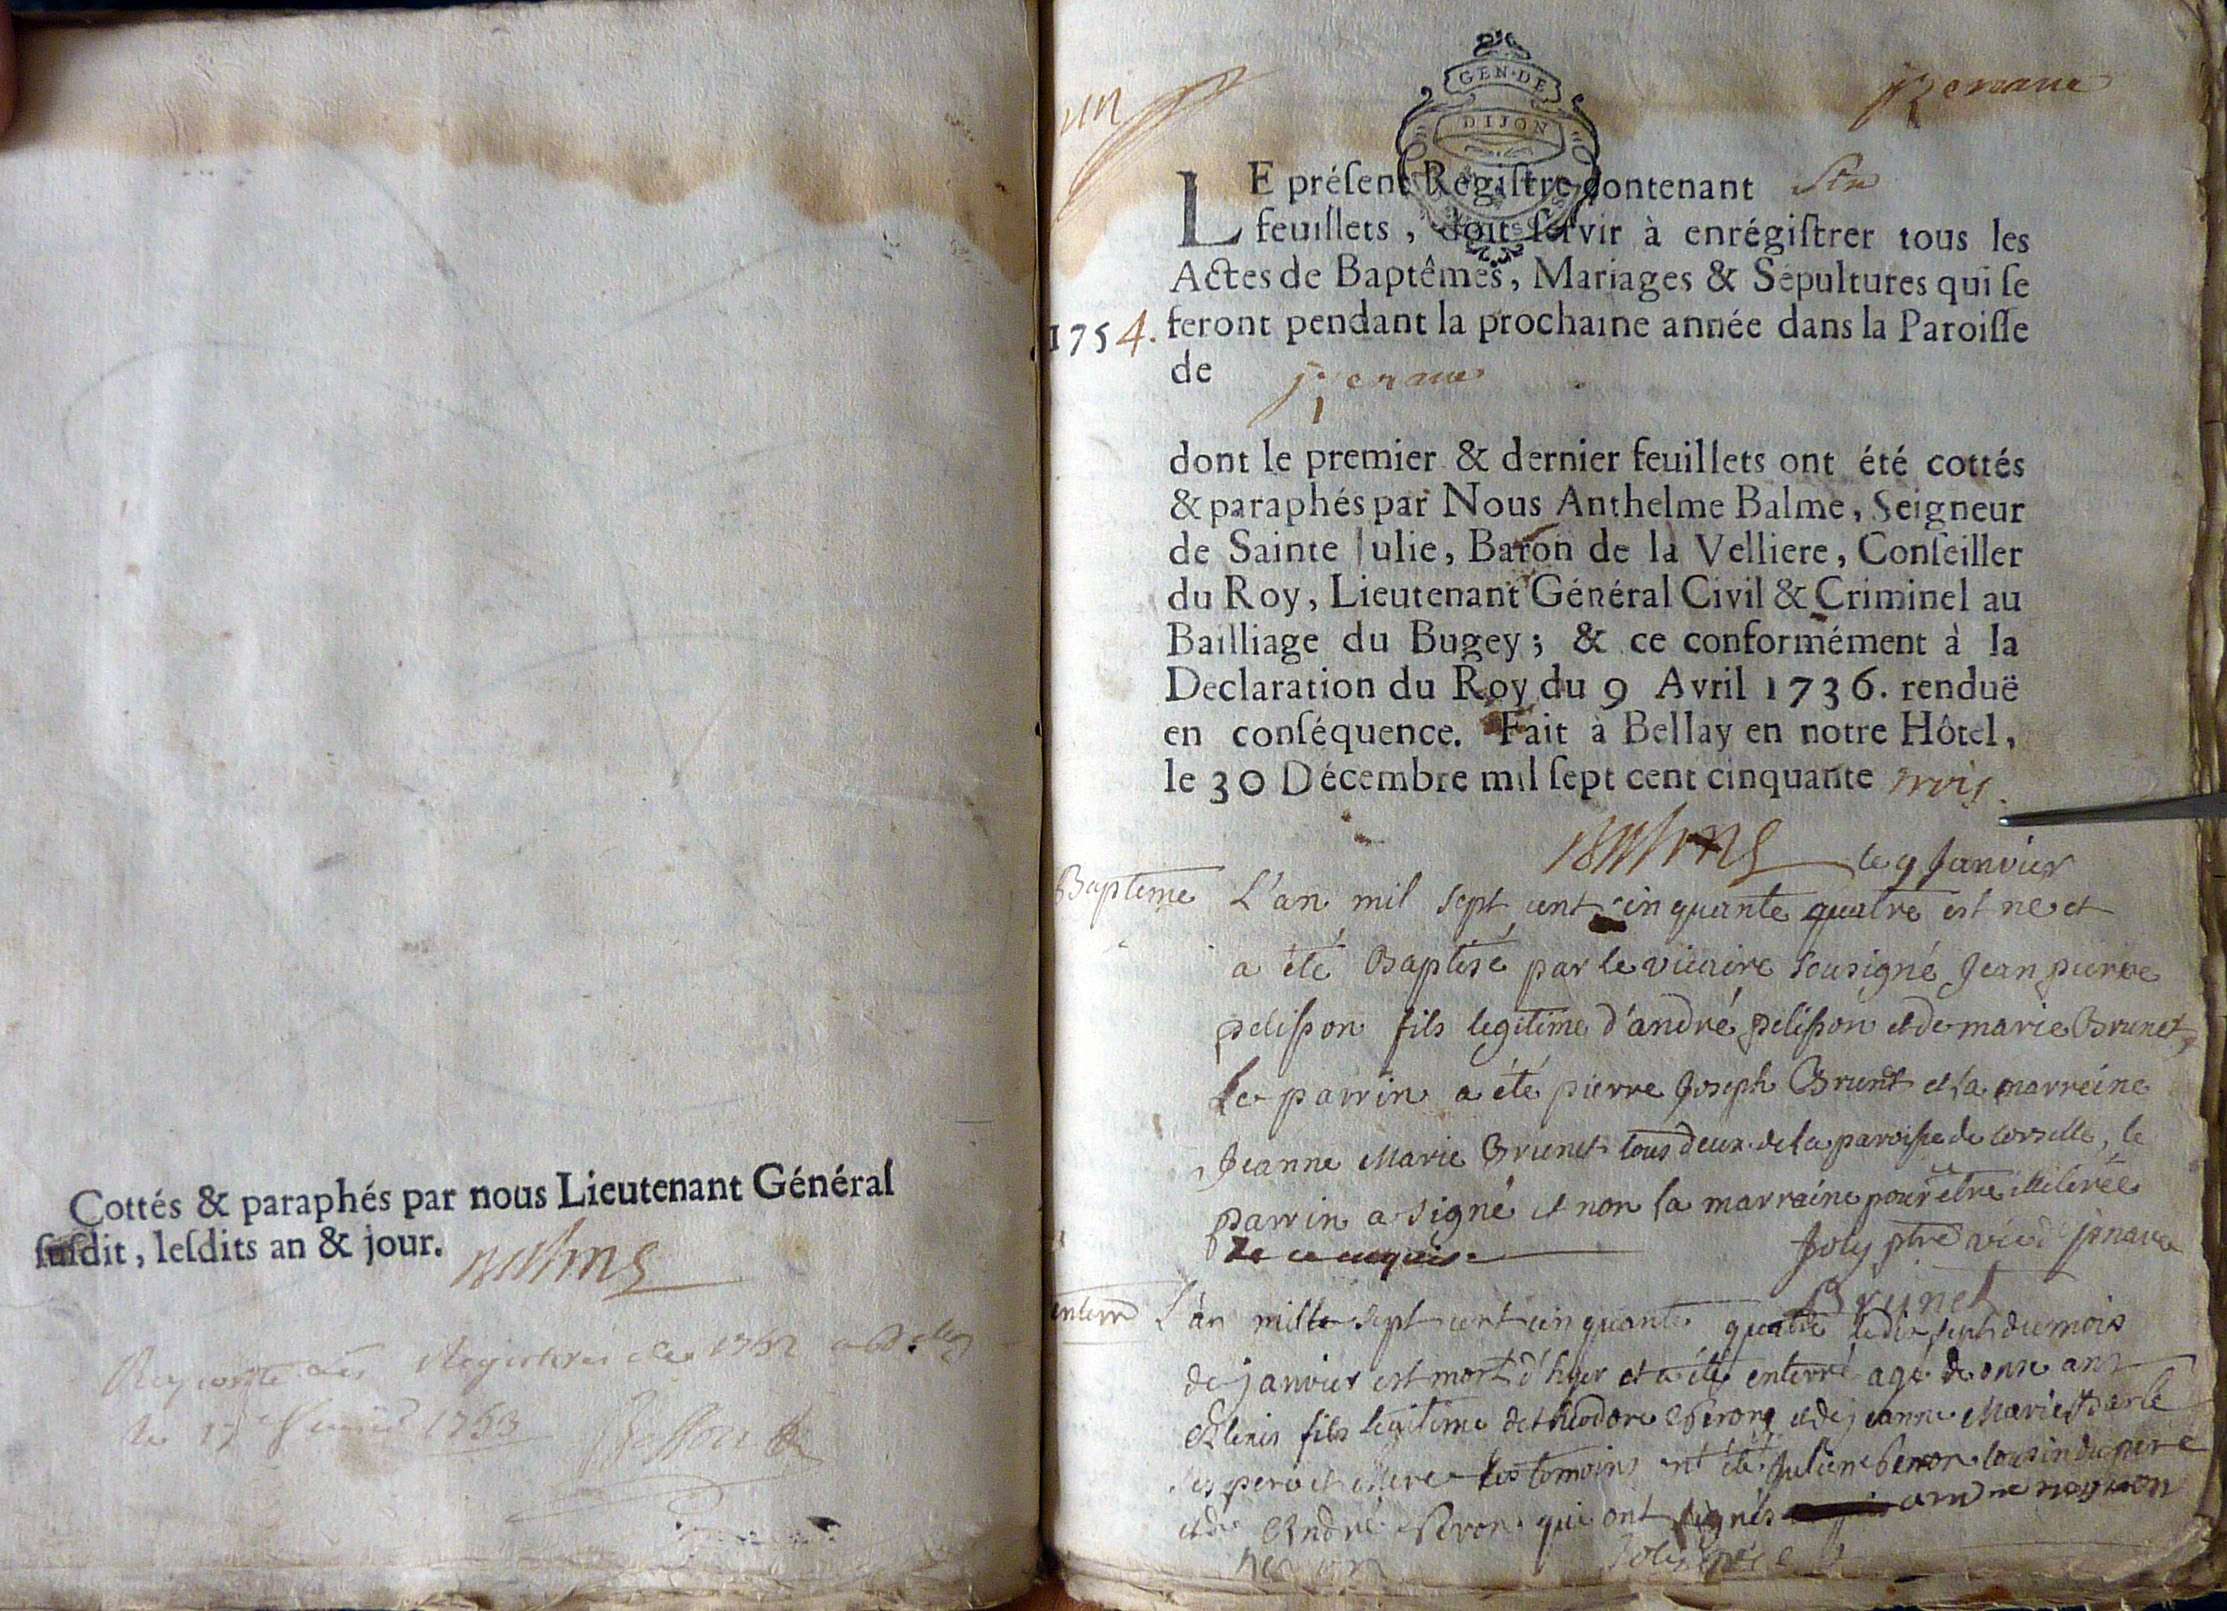 Cottés & paraphés par nous Lieutenant Général
ſuſdit, leſdits an & jour.
Balme
Registres de 1752
le 17 1753
un
GEN·DE
DIJON
LE préſent Regiſtre contenant Six
feuillets, doit ſervir à enrégiſtrer tous les
Actes de Baptêmes, Mariages & Sépultures qui ſe
1754. feront pendant la prochaine année dans la Paroiſſe
de
dont le premier & dernier feuillets ont été cottés
& paraphés par Nous Anthelme Balme, Seigneur
de Sainte Julie, Baron de la Velliere, Conſeiller
du Roy, Lieutenant Général Civil & Criminel au
Bailliage du Bugey; & ce conformément à la
Declaration du Roy du 9 Avril 1736. renduë
en conſéquence. Fait à Bellay en notre Hôtel,
le 30 Décembre mil ſept cent cinquante trois.
Balme le 9 Janvier
Bapteme L'an mil sept cent cinquante quatre est ne et
a été Baptisé par le vicaire sousigné Jean pierre
pelisson fils legitime d'andré pelisson et de marie Brunet,
Le parrin a été pierre Joseph Brunet et la marreine
Jeanne Marie Brunet tous deux de la paroisse de le
parrin a signé et non la marraine pour être illiterée
de ce enquise Joly ptre
Brunet
enterr L'an mille sept cent cinquante quatre le dix sept du mois
de janvier est mort d'hyer et a été enterré agé de onse ans
Alexis fils legitime de theodore et de jeanne Marie
ses pere et Mere les temoins ont été cousin du pere
et de André qui ont signés